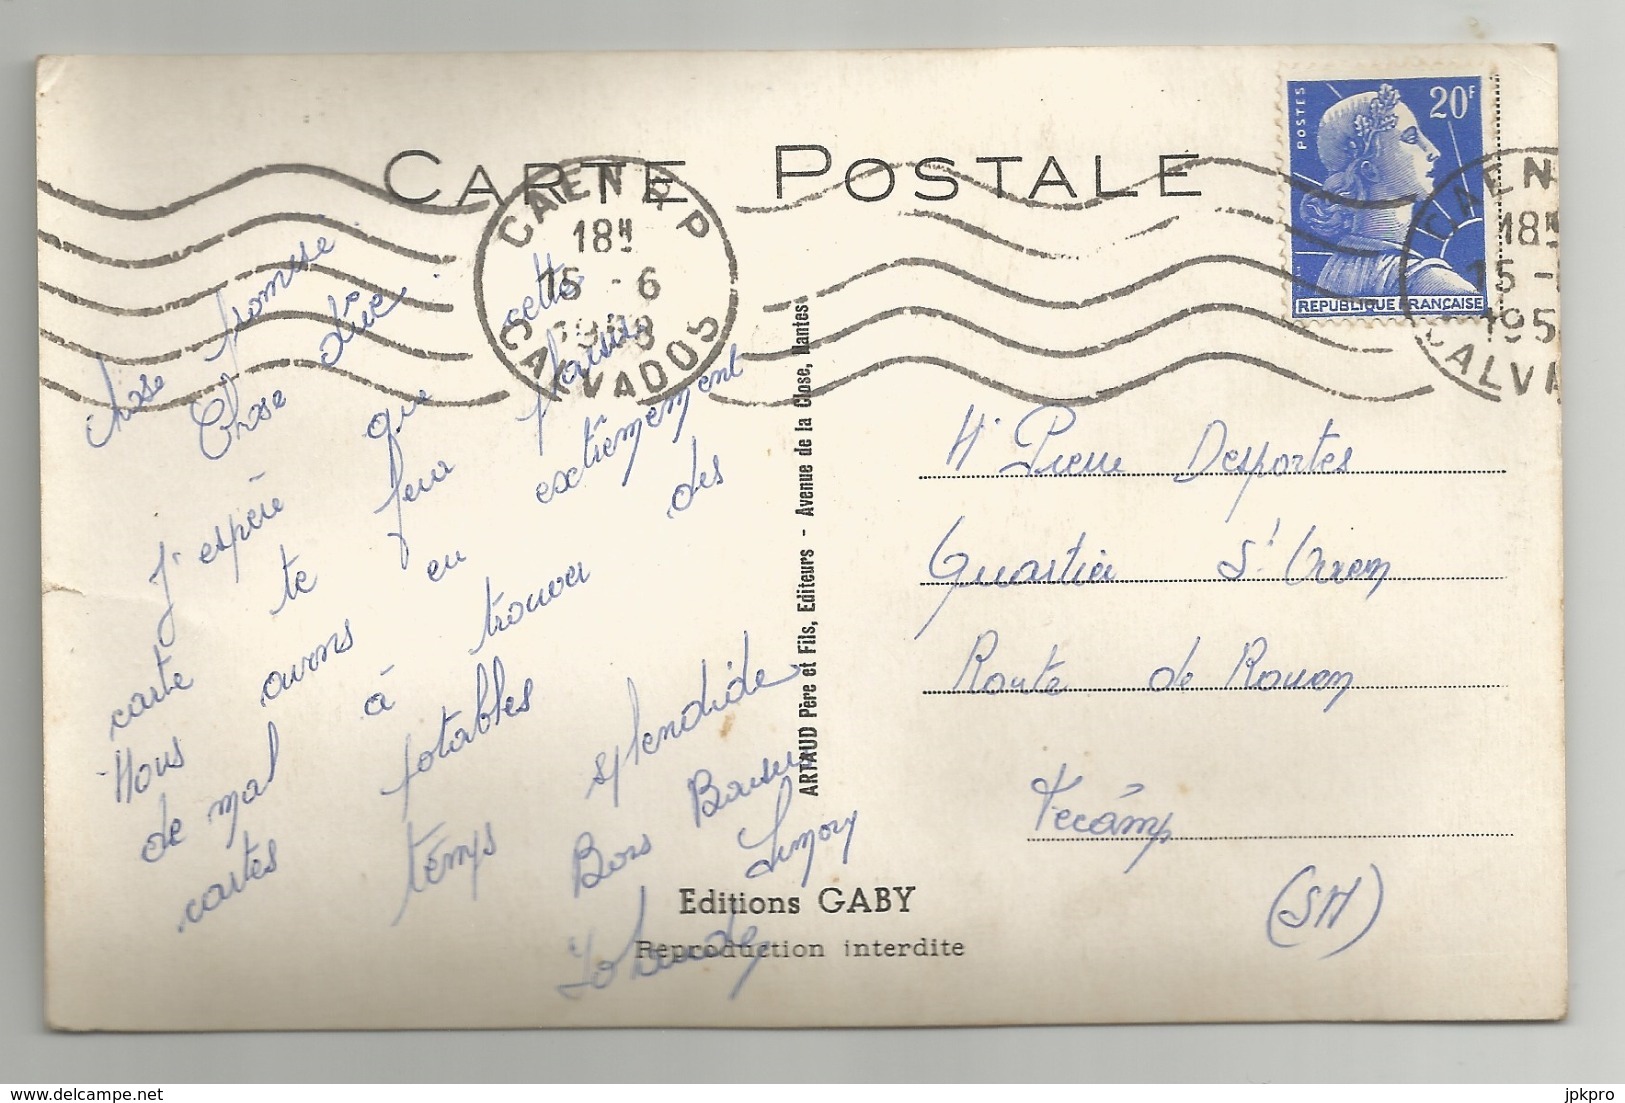 CARTE POSTALE
POSTES
20F
REPUBLIQUE FRANÇAISE
CAEN R P
18H
15 - 6
1958
CALVADOS
CAEN
18H
15 -
195
CALVA
chose promise
Chose due.
J'espère que cette
carte te fera plaisir
Nous avons eu extrêmement
de mal à trouver des
cartes potables
temps splendide
Bons Baisers
Yolande
M. Pierre Desportes
Quartier St Ouen
Route de Rouen
Fécamp
(SM)
ARTAUD Père et Fils, Editeurs - Avenue de la Close, Nantes
Editions GABY
Reproduction interdite
jpkpro